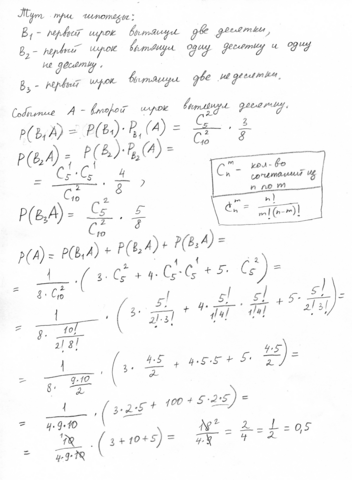 Тут три гипотезы:
B₁ - первый игрок вытянул две десятки,
B₂ - первый игрок вытянул одну десятку и одну
не десятку.
B₃ - первый игрок вытянул две не десятки.
Событие A - второй игрок вытянул десятку.
P(B₁A) = P(B₁)·P_{B₁}(A) = C₅²/C₁₀² · 3/8
P(B₂A) = P(B₂)·P_{B₂}(A) =
= C₅¹·C₅¹/C₁₀² · 4/8,
C_n^m = кол-во сочетаний из n по m
C_n^m = n!/(m!(n-m)!)
P(B₃A) = C₅²/C₁₀² · 5/8
P(A) = P(B₁A) + P(B₂A) + P(B₃A) =
= 1/(8·C₁₀²) · (3·C₅² + 4·C₅¹·C₅¹ + 5·C₅²) =
= 1/(8·10!/(2!8!)) · (3·5!/(2!·3!) + 4·5!/(1!4!)·5!/(1!4!) + 5·5!/(2!·3!)) =
= 1/(8·9·10/2) · (3·4·5/2 + 4·5·5 + 5·4·5/2) =
= 1/(4·9·10) · (3·2·5 + 100 + 5·2·5) =
= 10/(4·9·10) · (3+10+5) = 18²/(4·9) = 2/4 = 1/2 = 0,5